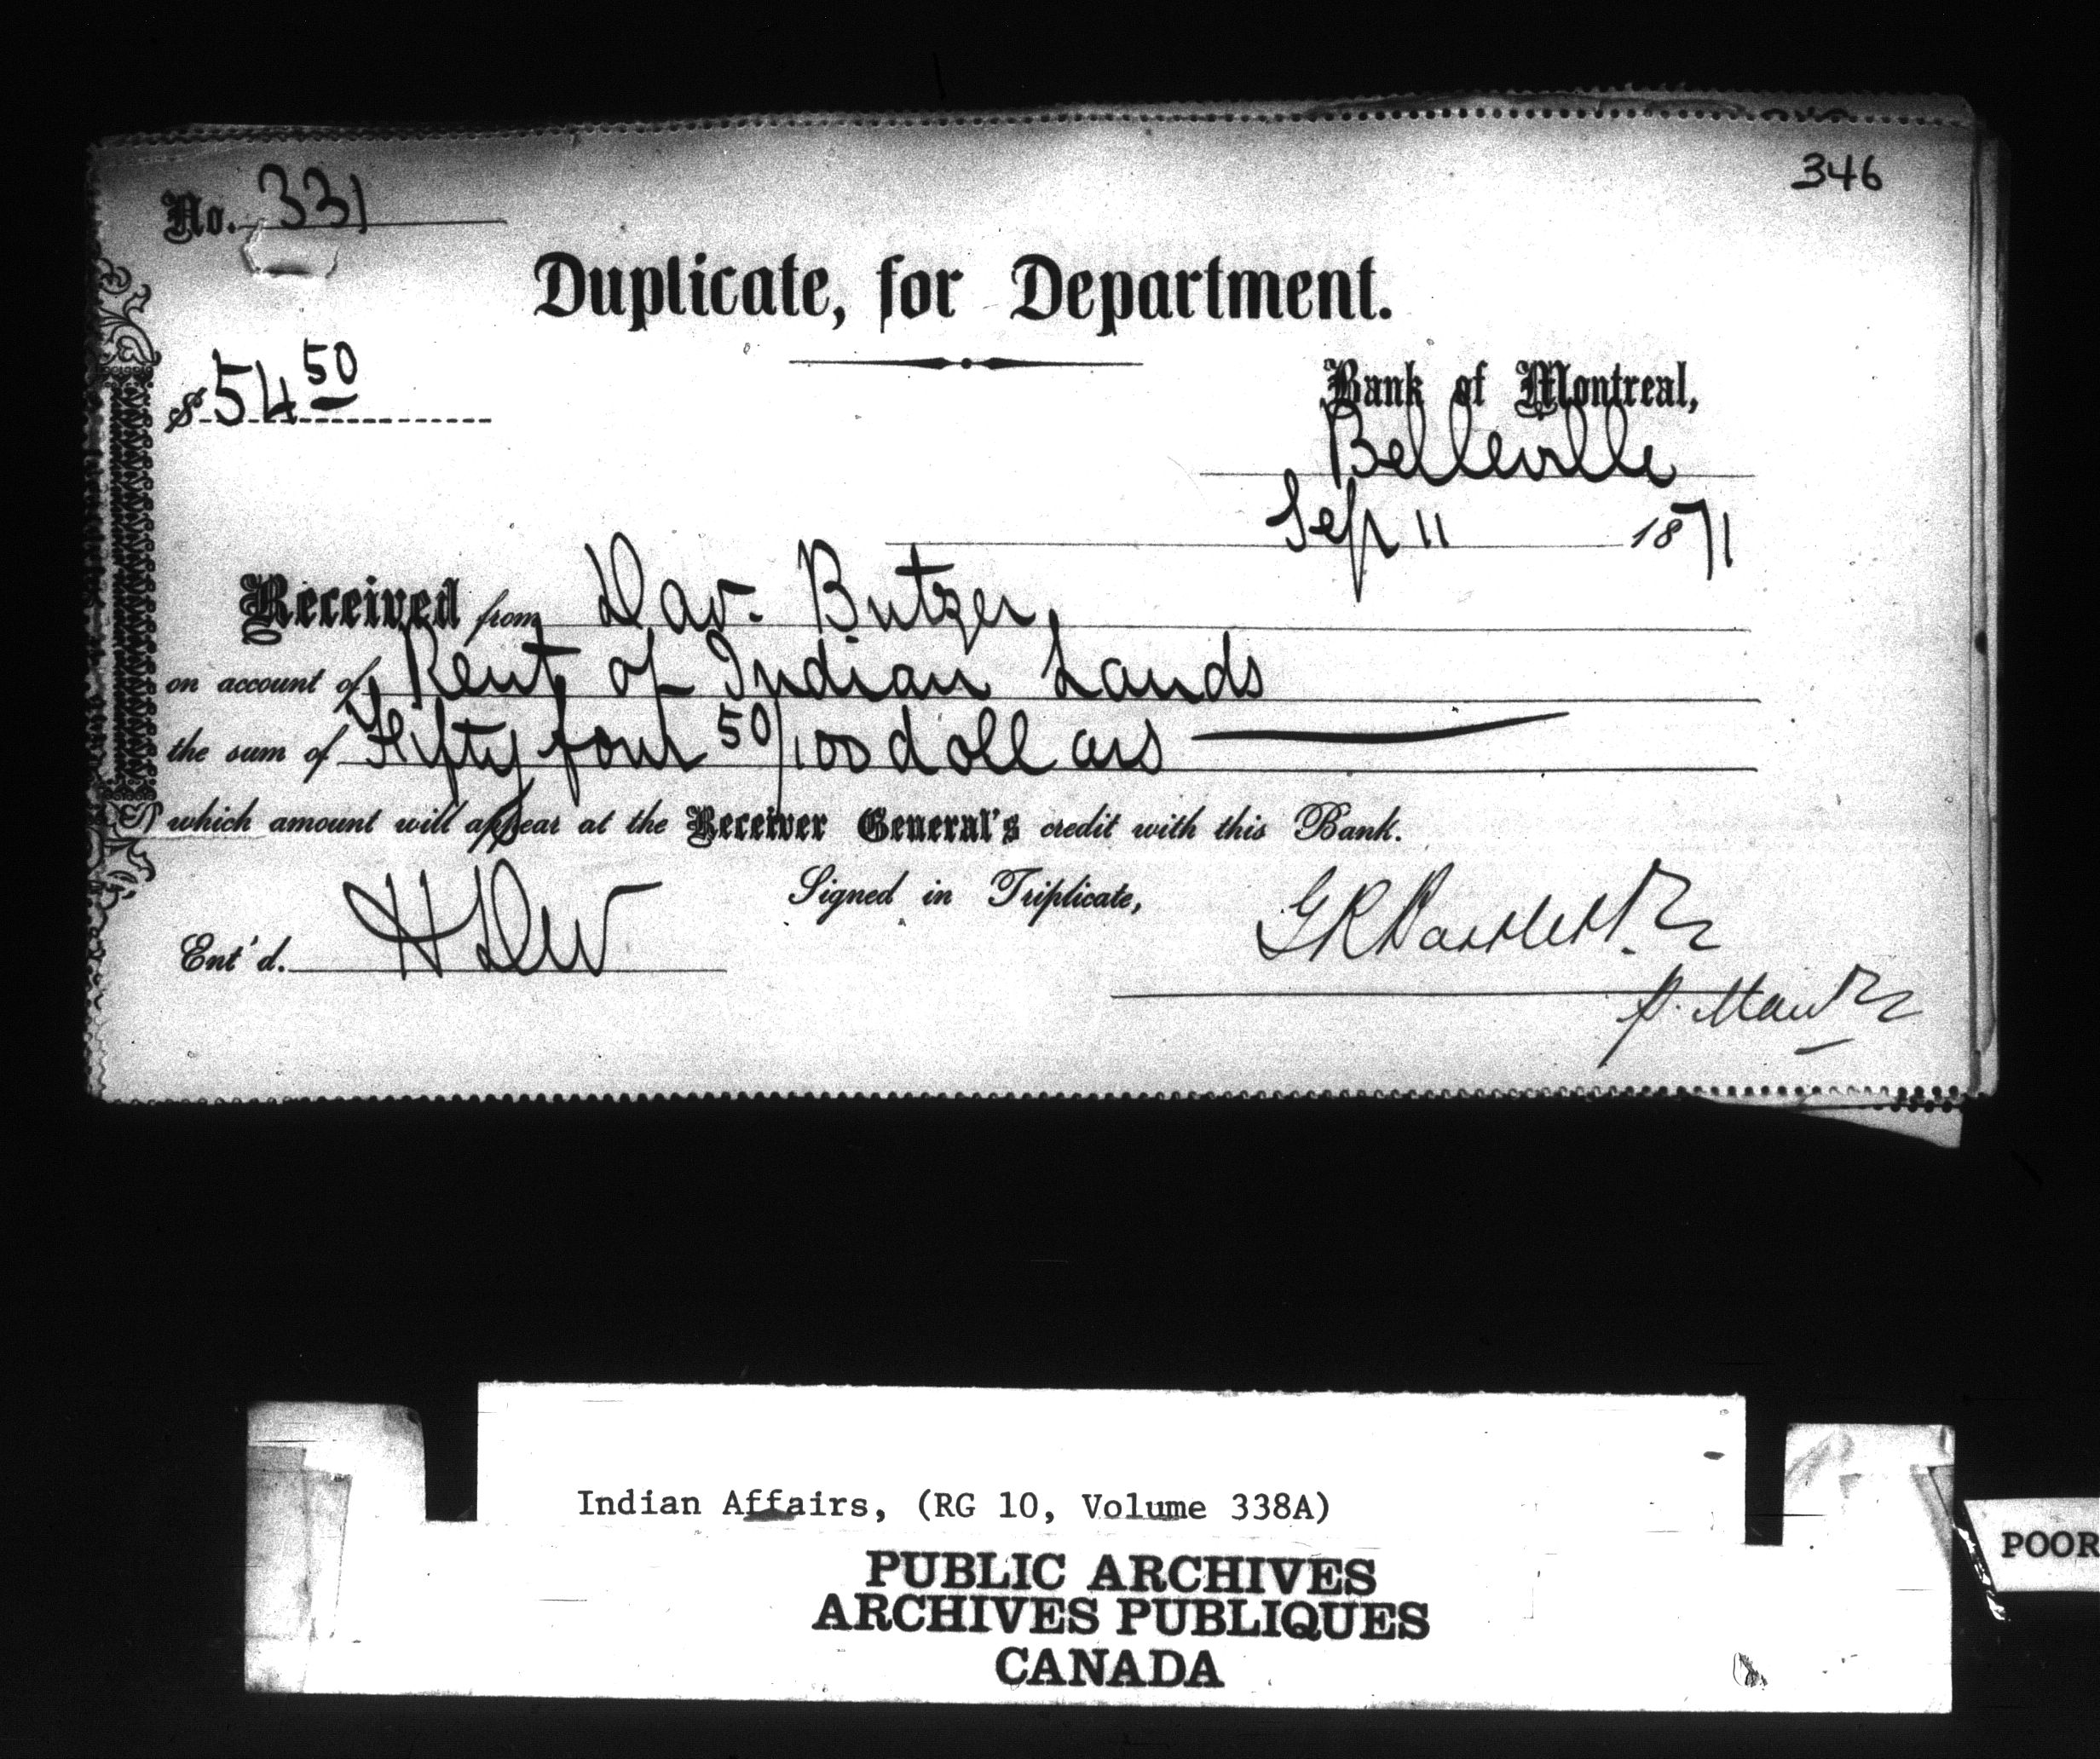 346
No. 331
Duplicate, for Department.
$ 54 50
Bank of Montreal,
Belleville
Sep 11 1871
Received from Dav. Butzer,
on account of Rent of Indian Lands
the sum of Fifty four 50/100 dollars
which amount will appear at the Receiver General's credit with this Bank.
Signed in Triplicate,
Ent'd. H Dew
G R Bartlett
p. Man
Indian Affairs, (RG 10, Volume 338A)
PUBLIC ARCHIVES
ARCHIVES PUBLIQUES
CANADA
POOR